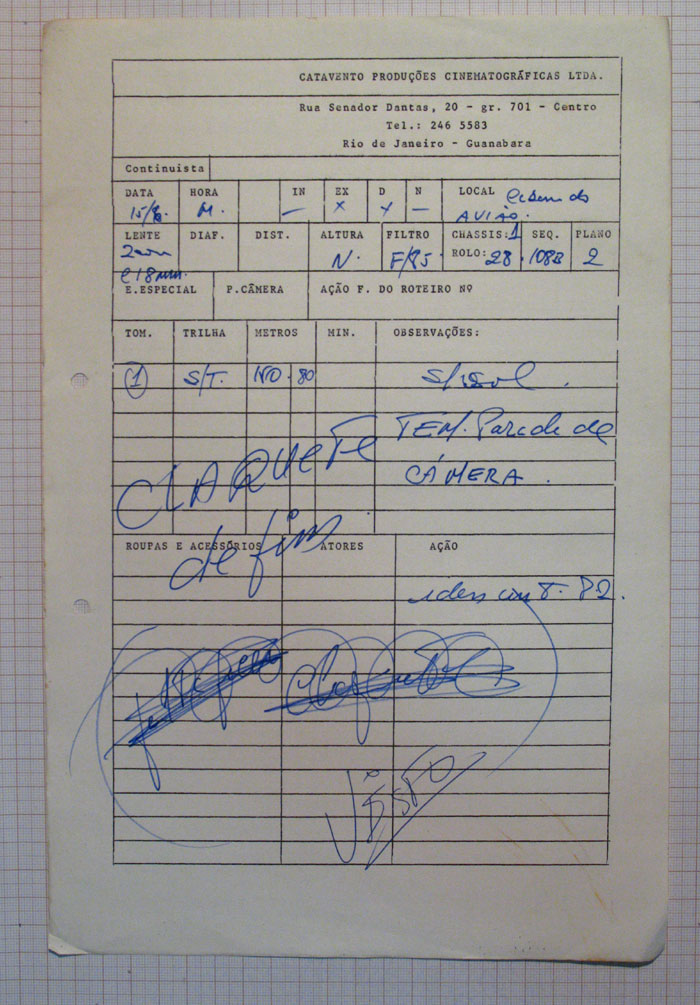 CATAVENTO PRODUÇÕES CINEMATOGRÁFICAS LTDA.
Rua Senador Dantas, 20 - gr. 701 - Centro
Tel.: 246 5583
Rio de Janeiro - Guanabara
Continuista
DATA HORA IN EX D N LOCAL
M. — X X — AVIÃO.
LENTE DIAF. DIST. ALTURA FILTRO CHASSIS: 1 SEQ. PLANO
Zoom N. F/85 ROLO: 28 108B 2
e 18mm.
E.ESPECIAL P.CÂMERA AÇÃO F. DO ROTEIRO Nº
TOM. TRILHA METROS MIN. OBSERVAÇÕES:
1 S/T. 80 s/sol.
TEM. Parada de
CLAQUETE CÂMERA.
de fim
ROUPAS E ACESSÓRIOS ATORES AÇÃO
VISTO